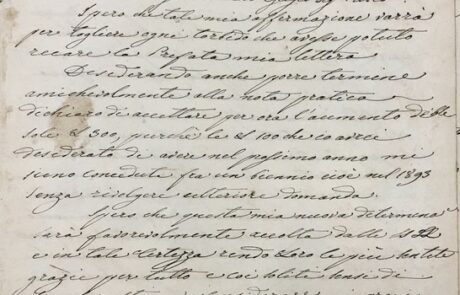 Spero che tale mia affirmazione varrà
per togliere ogni torbido che avesse potuto
recare la Prefata mia lettera
Desiderando anche porre termine
amichevolmente alla nota pratica
dichiaro di accettare per ora l'aumento di
sole £ 300, purchè le £ 100 che io avrei
desiderato di avere nel prossimo anno mi
sieno concedute fra un biennio cioè nel 1893
senza rivolgere ulteriore domanda.
Spero che questa mia nuova determina
sarà favorevolmente accolta dalle
e in tale certezza rendo Loro le più sentite
grazie per tutto e coi soliti sensi di